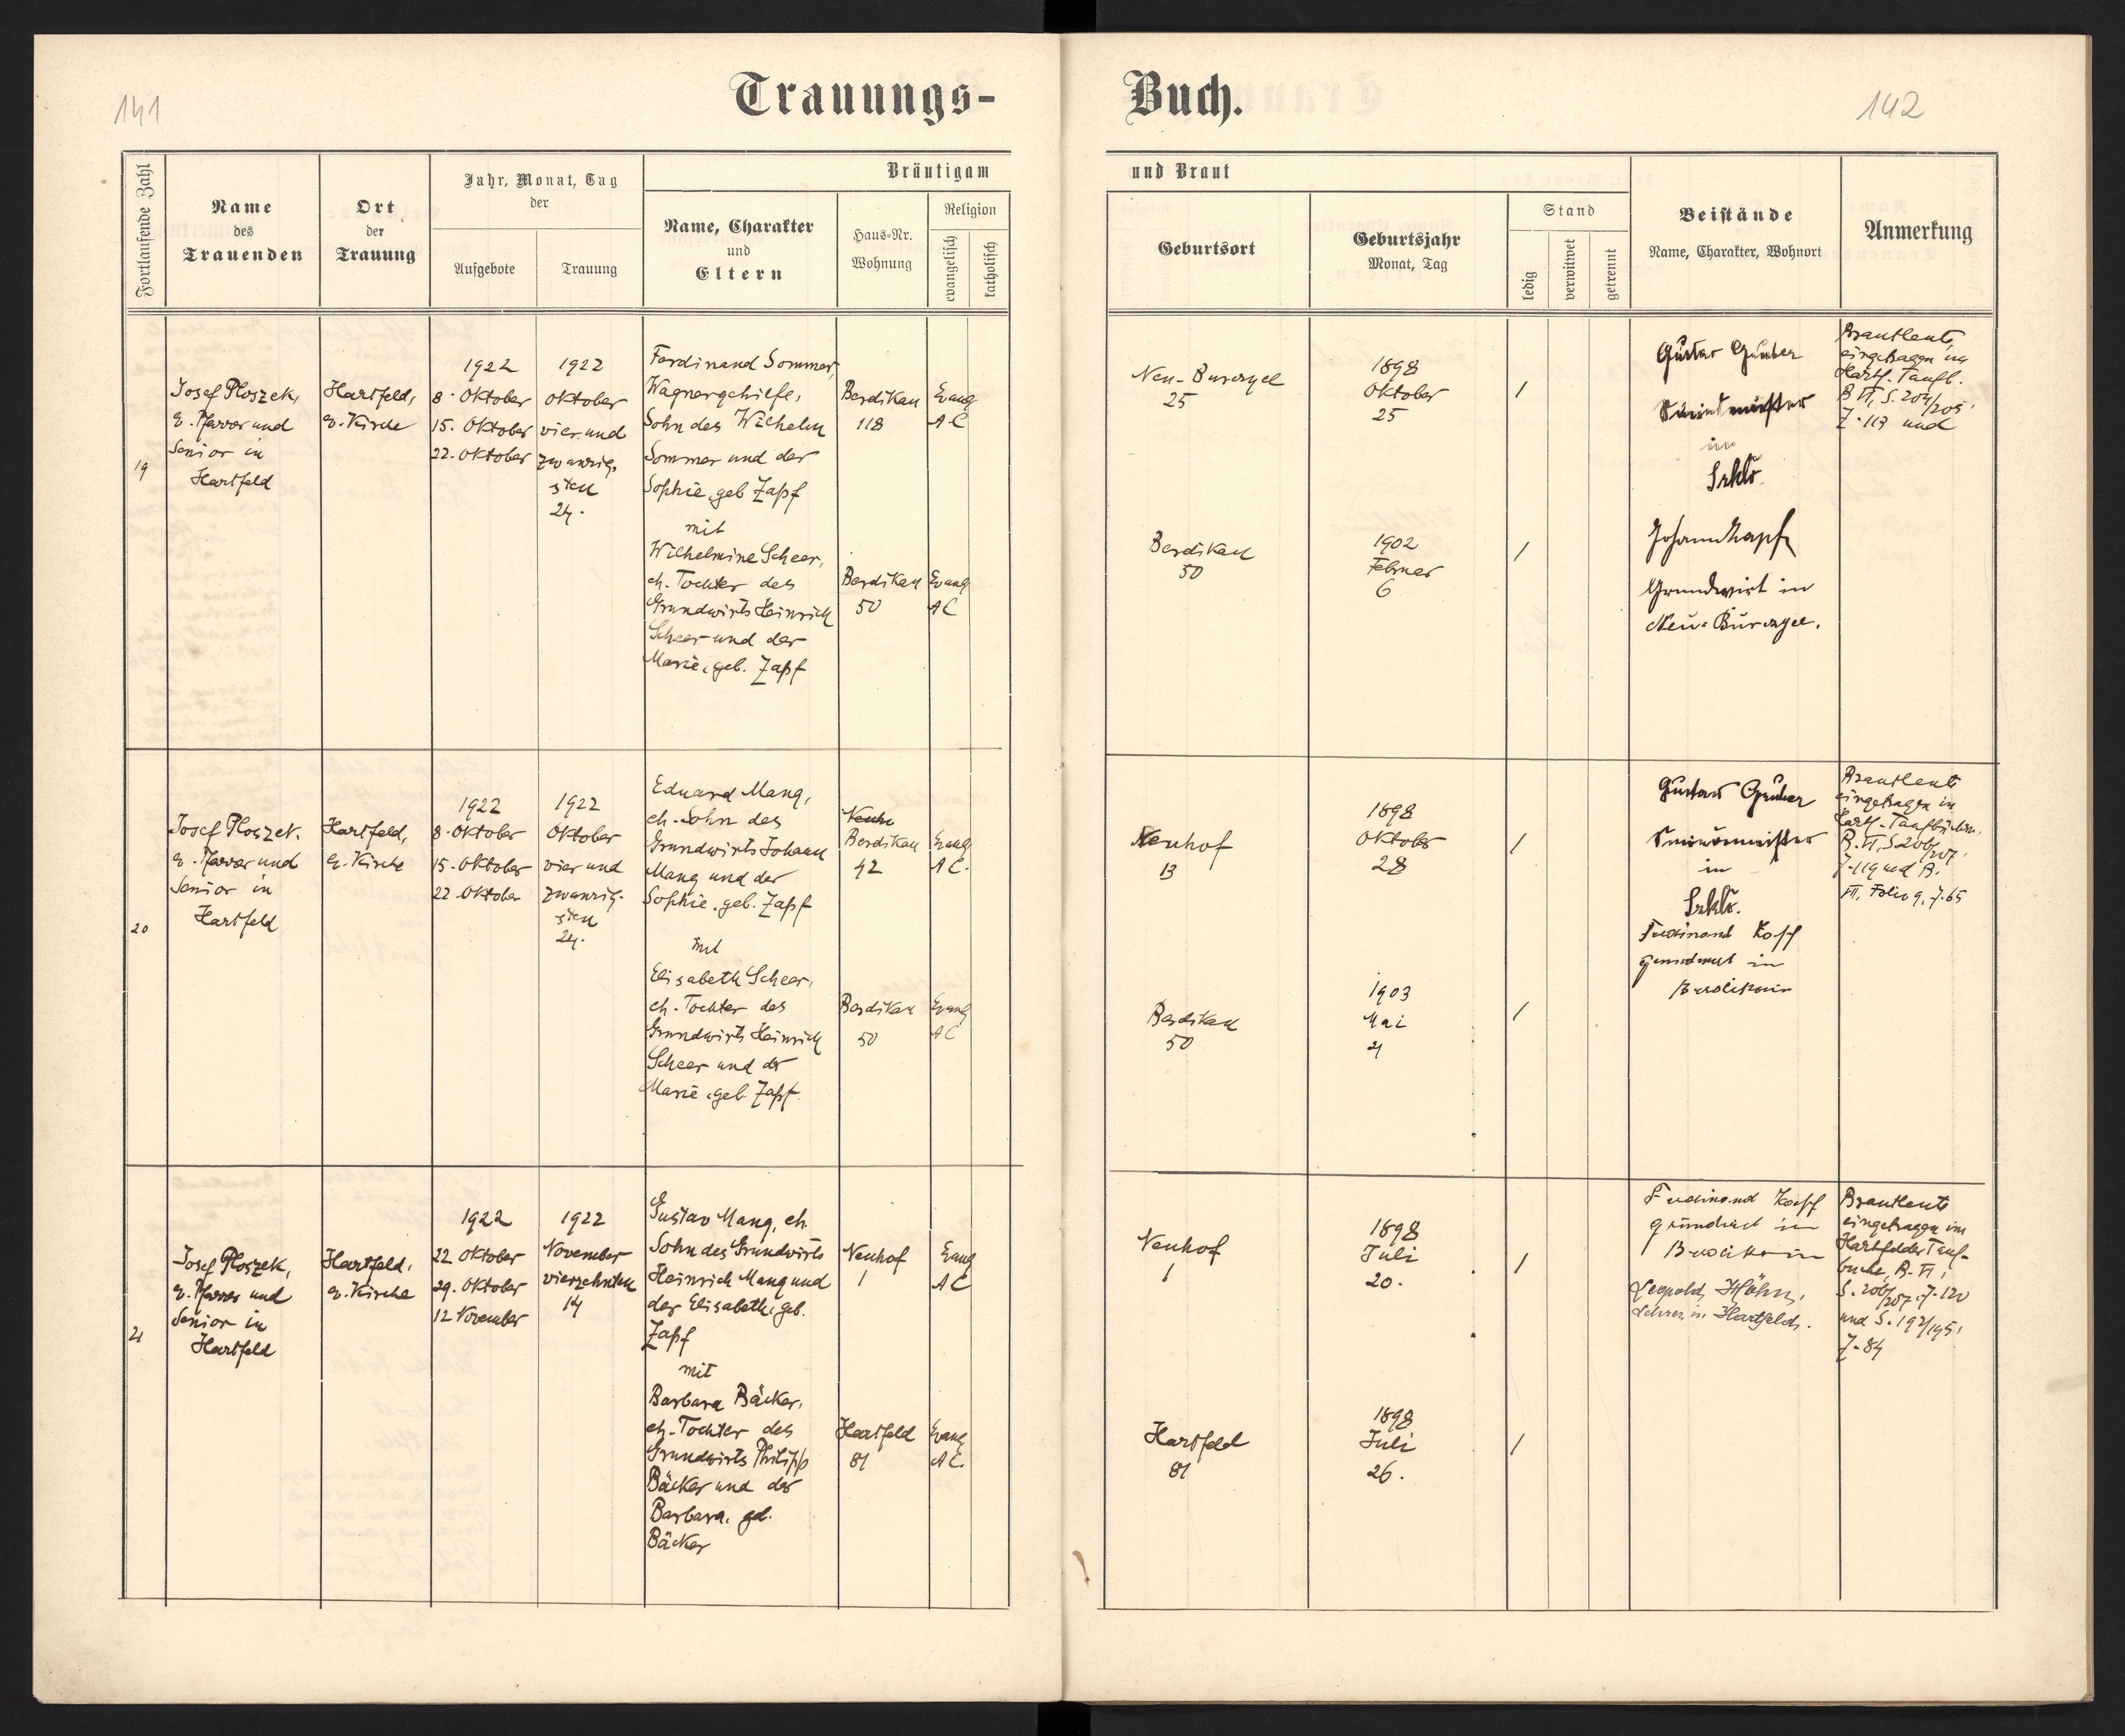 141
Trauungs-
Buch.
142
Fortlaufende Zahl
Name
des
Trauenden
Ort
der
Trauung
Jahr, Monat, Tag
der
Aufgebote
Trauung
Bräutigam
Name, Charakter
und
Eltern
Haus-Nr.
Wohnung
Religion
evangelisch
katholisch
und Braut
Geburtsort
Geburtsjahr
Monat, Tag
Stand
ledig
verwitwet
getrennt
Beistände
Name, Charakter, Wohnort
Anmerkung
19
Josef Ploszek,
e. Pfarrer und
Senior in
Hartfeld
Hartfeld,
e. Kirche
1922
8. Oktober
15. Oktober
22. Oktober
1922
Oktober
vier und
zwanzig-
sten
24.
Ferdinand Sommer,
Wagnergehilfe,
Sohn des Wilhelm
Sommer und der
Sophie, geb Zapf
mit
Wilhelmine Scheer,
eh. Tochter des
Grundwirts Heinrich
Scheer und der
Marie, geb. Zapf
Berdikau
118
Evang
A C
Berdikau
50
Evang
A C
Neu-Burczyce
25
1898
Oktober
25
/
Berdikau
50
1902
Februar
6
/
Gustav Gruber
in
Johann Kapf
Grundwirt in
Neu-Burczyce.
Brautleute
eingetragen im
Hartf. Taufb.
B VI, S. 204/205,
Z. 113 und
20
Josef Ploszek,
e. Pfarrer und
Senior in
Hartfeld
Hartfeld,
e. Kirche
1922
8. Oktober
15. Oktober
22. Oktober
1922
Oktober
vier und
zwanzig-
sten
24.
Eduard Mang,
eh. Sohn des
Grundwirts Johann
Mang und der
Sophie, geb. Zapf
mit
Elisabeth Scheer,
eh. Tochter des
Grundwirts Heinrich
Scheer und der
Marie, geb Zapf.
Berdikau
42
Evang
A C.
Berdikau
50
Evang
A C
Neuhof
13
1898
Oktober
28
/
Berdikau
50
1903
Mai
4
/
Gustav Gruber
in
Ferdinand Kopf
Grundwirt in
Berdikau
Brautleute
eingetragen in
Hartf. Taufbüchern,
B. VI, S 206/207,
Z. 119 und B.
VII, Folio 9, Z. 65
21
Josef Ploszek,
e. Pfarrer und
Senior in
Hartfeld
Hartfeld,
e. Kirche
1922
22 Oktober
29. Oktober
12 November
1922
November
vierzehnten
14
Gustav Mang, eh.
Sohn des Grundwirts
Heinrich Mang und
der Elisabeth, geb.
Zapf
mit
Barbara Bäcker,
eh. Tochter des
Grundwirts Philipp
Bäcker und der
Barbara, geb.
Bäcker
Neuhof
1
Evang
A C
Hartfeld
81
Evang
A C.
Neuhof
1
1898
Juli
20.
/
Hartfeld
81
1898
Juli
26.
/
Ferdinand Kopf
Grundwirt in
Berdikau
Leopold Höhn,
Lehrer in Hartfeld.
Brautleute
eingetragen im
Hartfelder Tauf-
buche, B. VI,
S. 206/207, Z. 120
und S. 194/195,
Z. 84